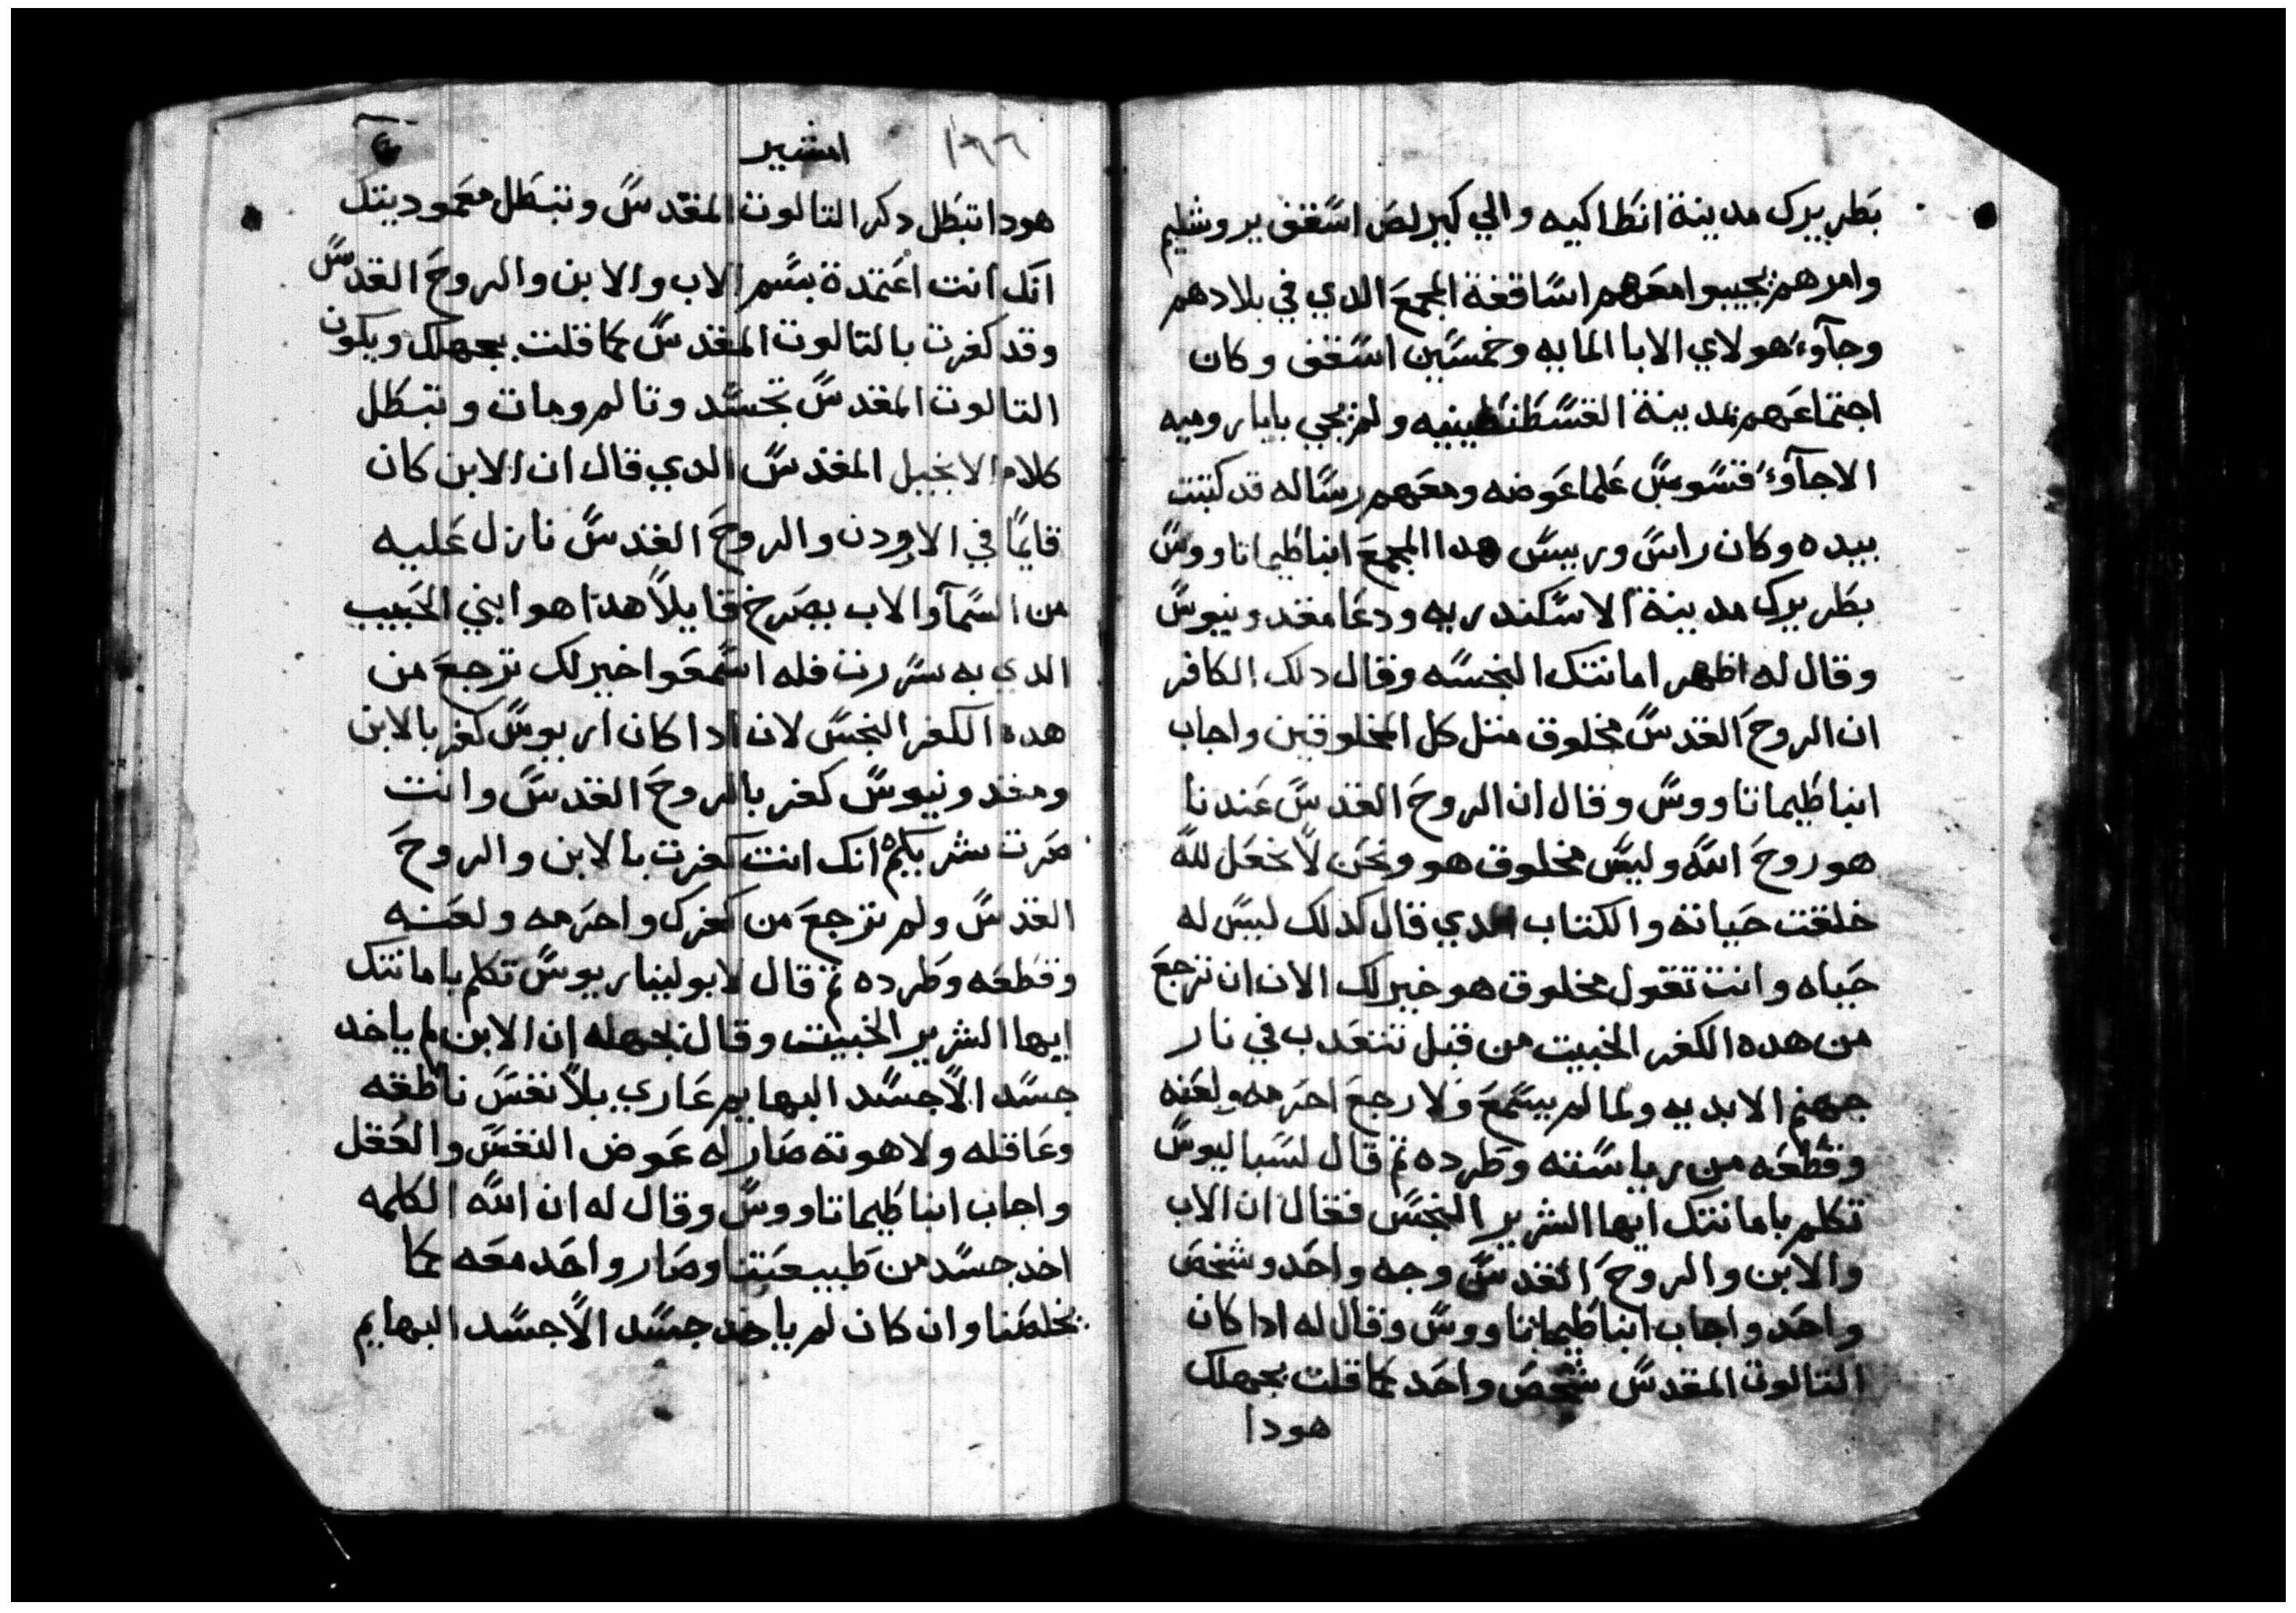 بطريرك مدينة انطاكيه والي كيرلص اسقف يروشليم
وامرهم يجيبوا معهم اساقفة المجمع الدي في بلادهم
وجآوء هولاي الابا المايه وخمسين اسقف وكان
اجتماعهم بمدينة القسطنطينيه ولم يجي بابا روميه
الا جآوء قسوس علما عوضه ومعهم رساله قد كتبت
بيده وكان راس وريس هدا المجمع انبا طيماتاووس
بطريرك مدينة الاسكندريه ودعا مقدونيوس
وقال له اظهر امانتك النجسه وقال دلك الكافر
ان الروح القدس مخلوق متل كل المخلوقين واجاب
انبا طيماتاووس وقال ان الروح القدس عندنا
هو روح الله وليس مخلوق هو ونحن لا نجعل لله
خلقت حياته والكتاب الدي قال كدلك ليس له
حياه وانت تقول مخلوق هو خير لك الان ان ترجع
من هده الكفر الخبيت من قبل تتعدب في نار
جهنم الابديه ولما لم يسمع ولا رجع احرمه ولعنه
وقطعه من رياسته وطرده تم قال لسباليوس
تكلم بامانتك ايها الشرير النجس فقال ان الاب
والابن والروح القدس وجه واحد وشخص
واحد واجاب انبا طيماتاووس وقال له ادا كان
التالوت المقدس شخص واحد كما قلت بجهلك
هودا
١٩٦ امشير
هودا تبطل دكر التالوت المقدس وتبطل معموديتك
انك انت اعتمدة بسم الاب والابن والروح القدس
وقد كفرت بالتالوت المقدس كما قلت بجهلك ويكون
التالوت المقدس تجسد وتالم ومات وتبطل
كلام الانجيل المقدس الدي قال ان الابن كان
قايمًا في الاردن والروح القدس نازل عليه
من السمآ والاب يصرخ قايلاً هدا هو ابني الحبيب
الدي به سررت فله اسمعوا خير لك ترجع من
هده الكفر النجس لان ادا كان اريوس كفر بالابن
ومقدونيوس كفر بالروح القدس وانت
صرت شريكهم انك انت كفرت بالابن والروح
القدس ولم ترجع من كفرك واحرمه ولعنه
وقطعه وطرده تم قال لابوليناريوس تكلم بامانتك
ايها الشرير الخبيت وقال بجهله ان الابن لم ياخد
جسد الا جسد البهايم عاري بلا نفس ناطقه
وعاقله ولاهوته صار له عوض النفس والعقل
واجاب انبا طيماتاووس وقال له ان الله الكلمه
اخد جسد من طبيعتنا وصار واحد معه كما
يخلصنا وان كان لم ياخد جسد الا جسد البهايم